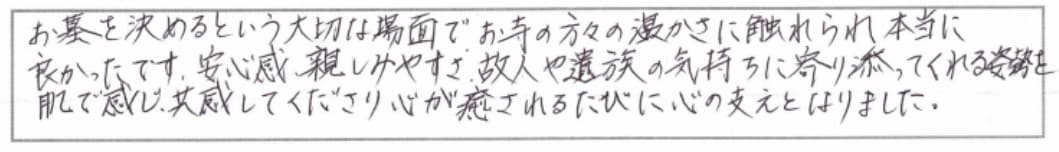 お墓を決めるという大切な場面でお寺の方々の温かさに触れられ本当に
良かったです。安心感、親しみやすさ、故人や遺族の気持ちに寄り添ってくれる姿勢を
肌で感じ、共感してくださり心が癒されるたびに心の支えとなりました。